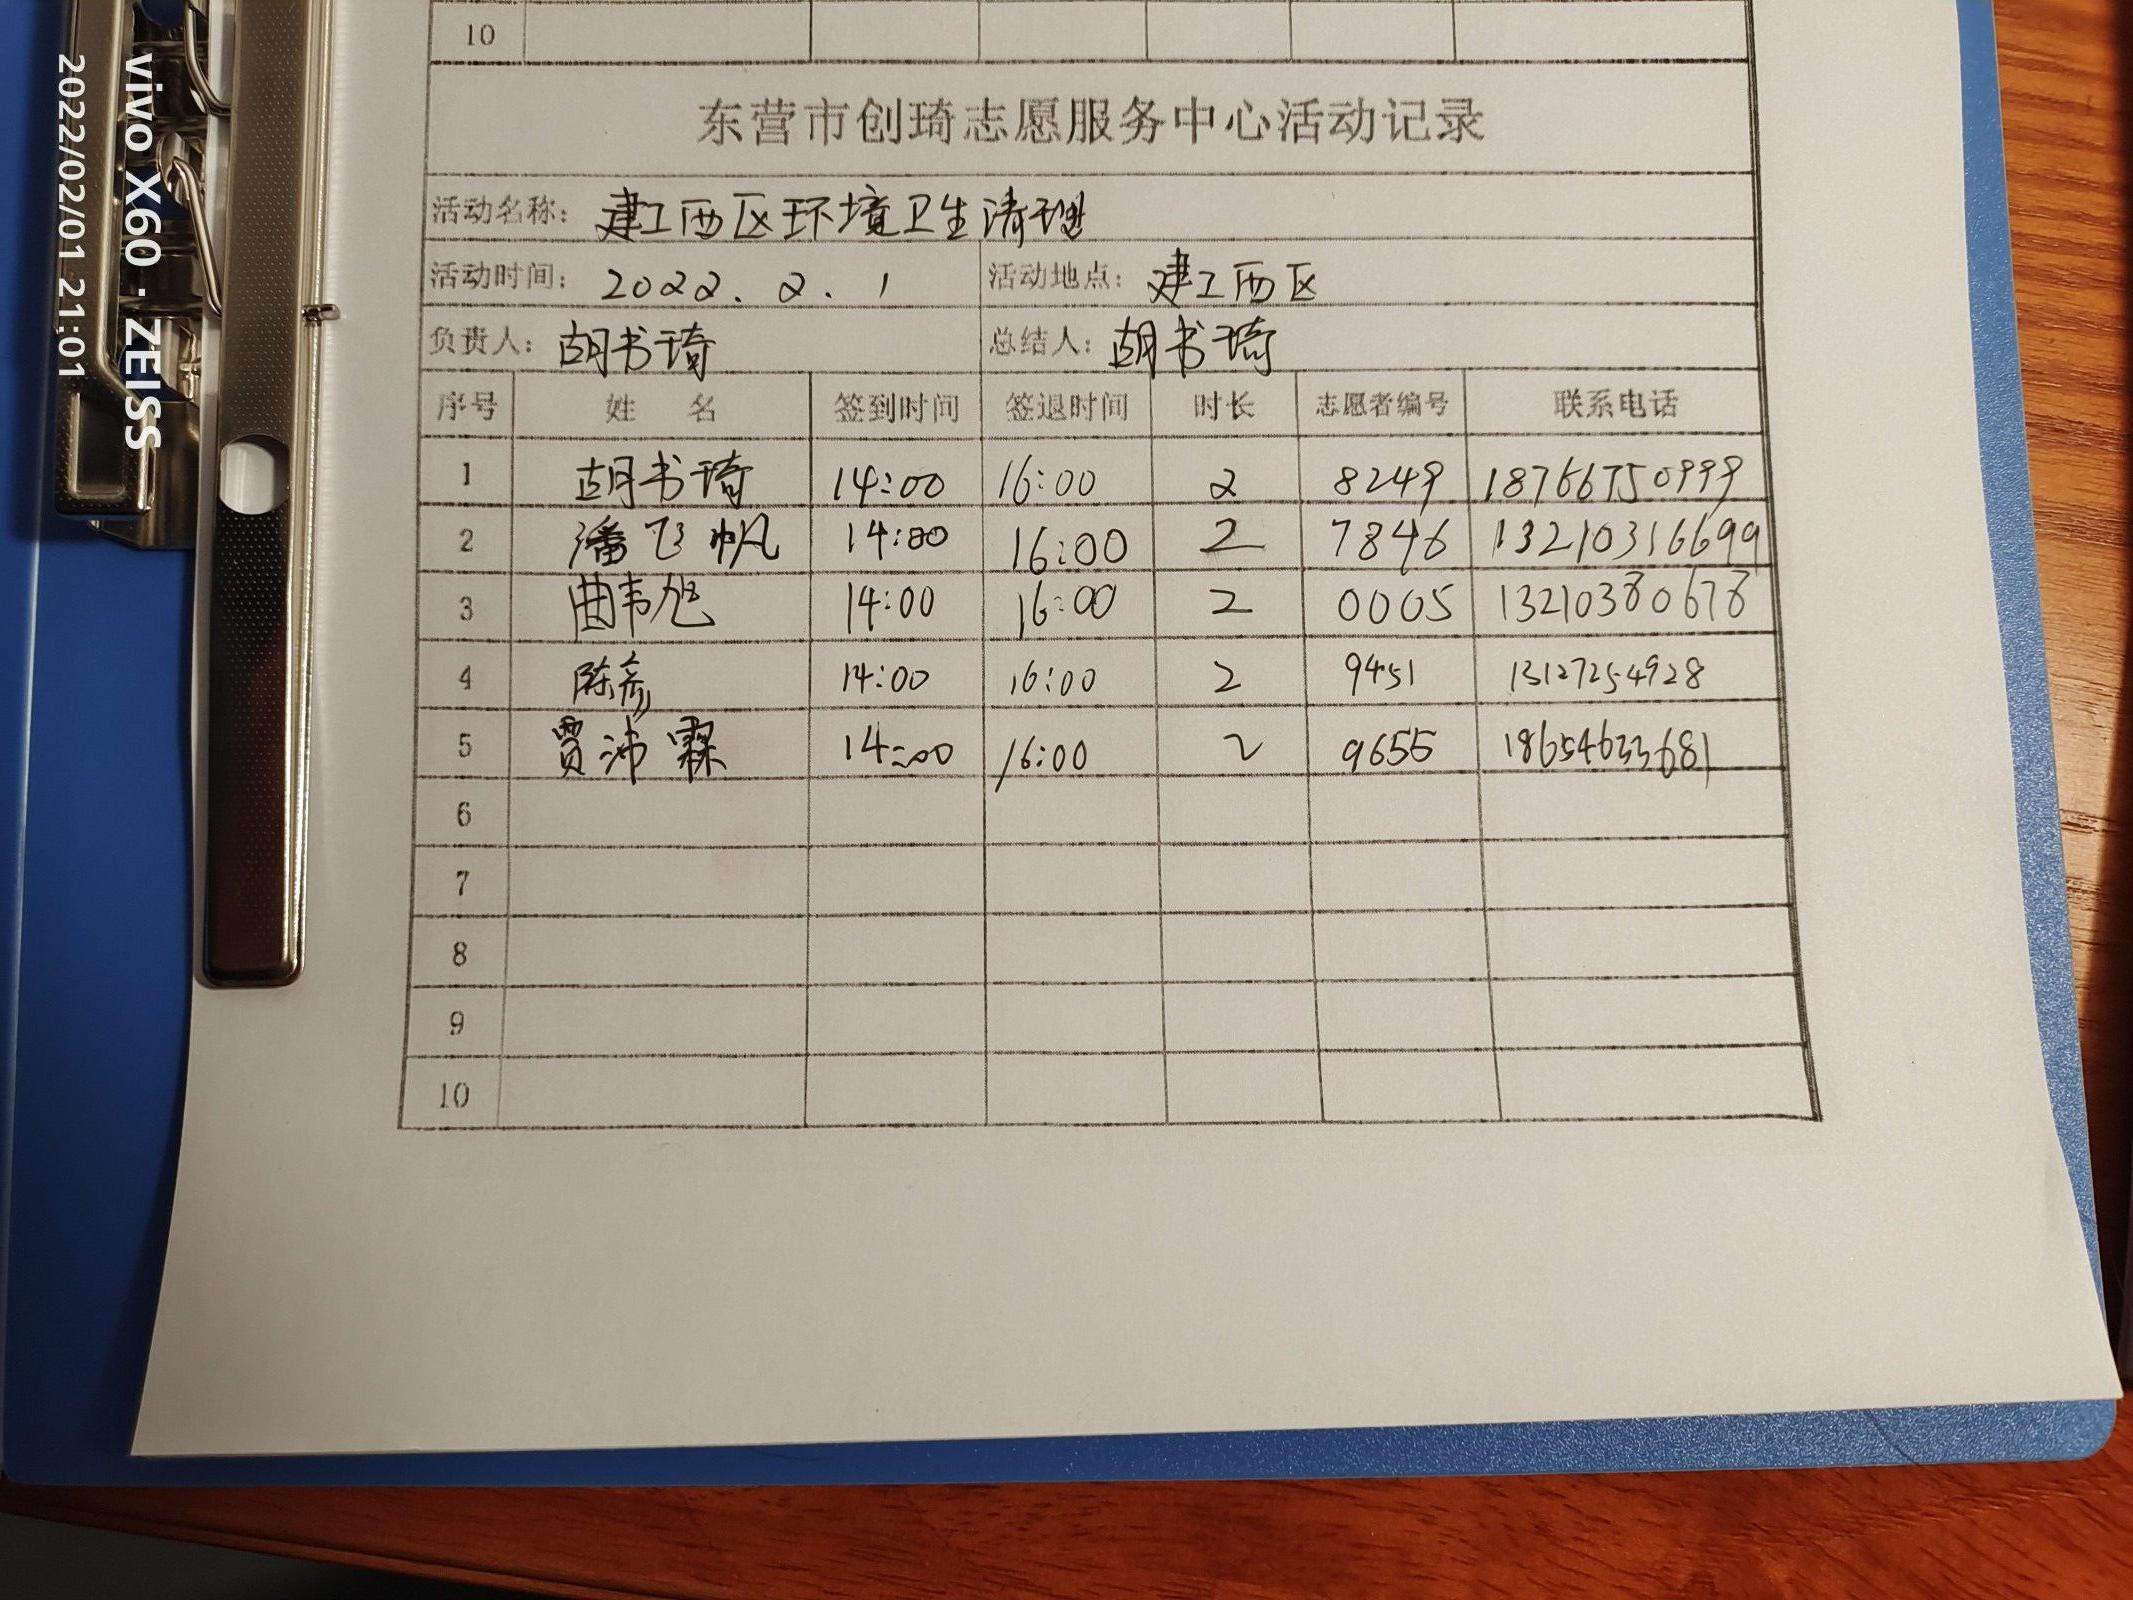 10
东营市创琦志愿服务中心活动记录
活动名称： 建工西区环境卫生清理
活动时间： 2022.2.1 活动地点： 建工西区
负责人： 胡书琦 总结人： 胡书琦
序号 姓 名 签到时间 签退时间 时长 志愿者编号 联系电话
1 胡书琦 14:00 16:00 2 8249 18766750999
2 潘飞帆 14:00 16:00 2 7846 13210316699
3 曲韦旭 14:00 16:00 2 0005 13210380678
4 陈彦 14:00 16:00 2 9451 13127254928
5 贾沛霖 14:00 16:00 2 9655 18654633681
6
7
8
9
10
vivo X60 · ZEISS
2022/02/01 21:01